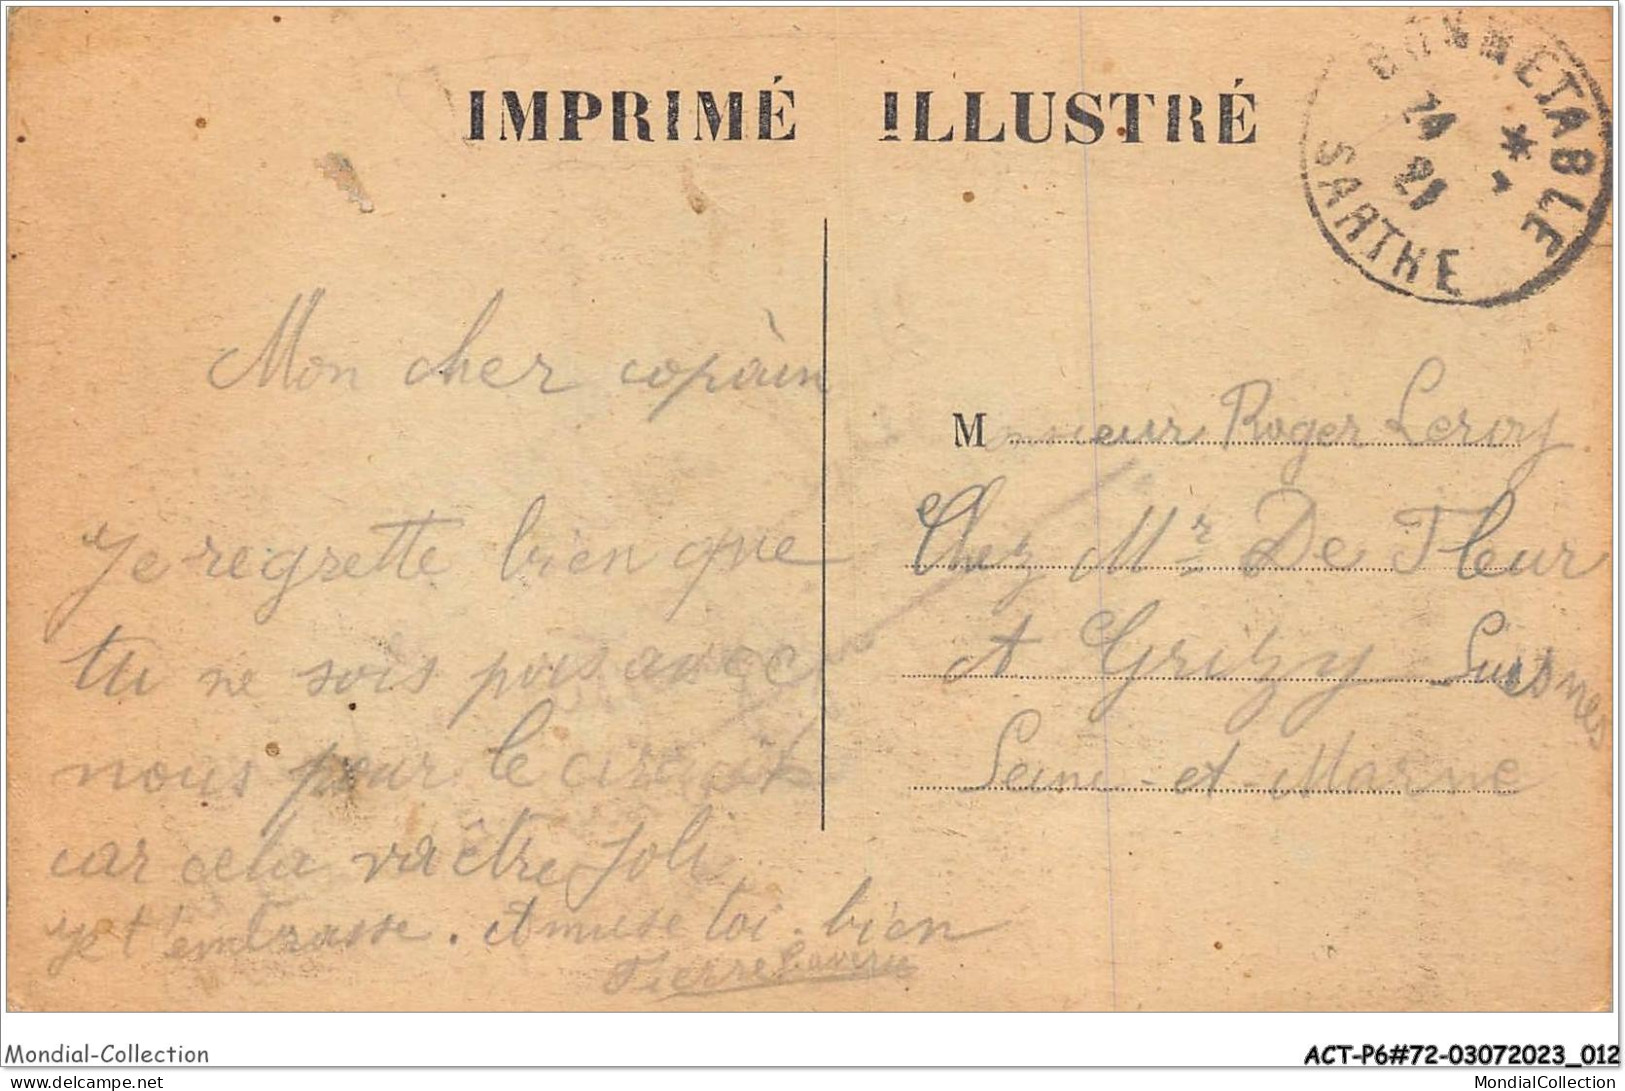 IMPRIMÉ ILLUSTRÉ
BONNETABLE
24
*
21
SARTHE
Mon cher copàin
Je regrette bien que
tu ne sois pas avec
nous pour le circuit
car cela va être joli
je t'embrasse. Amuse toi. bien
Pierre
Monsieur Roger Leroy
Chez Mr De Fleur
A Grizy Suisnes
Seine-et-Marne
Mondial-Collection
ACT-P6#72-03072023_012
MondialCollection
www.delcampe.net